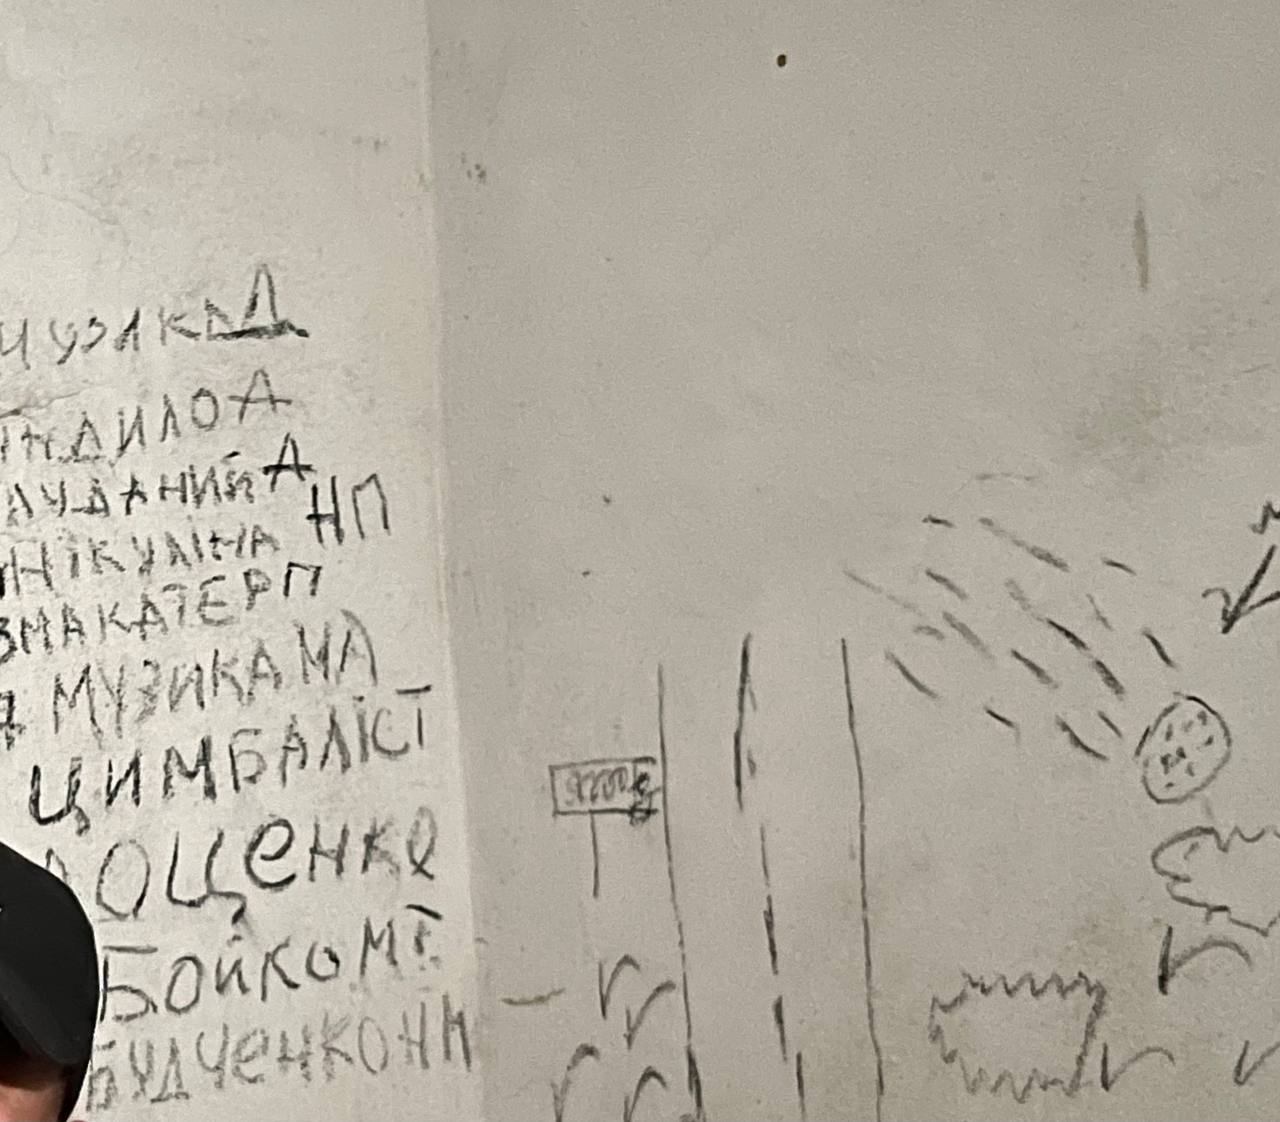 МУЗИКА Д
НДИЛО А
АУДАНИЙ А
НІКУЛІНА НП
ЗМАКАТЕР П
МУЗИКА МА
ЦИМБАЛІСТ
ОЩЕНКО
БОЙКО МТ
БУДЧЕНКО НМ